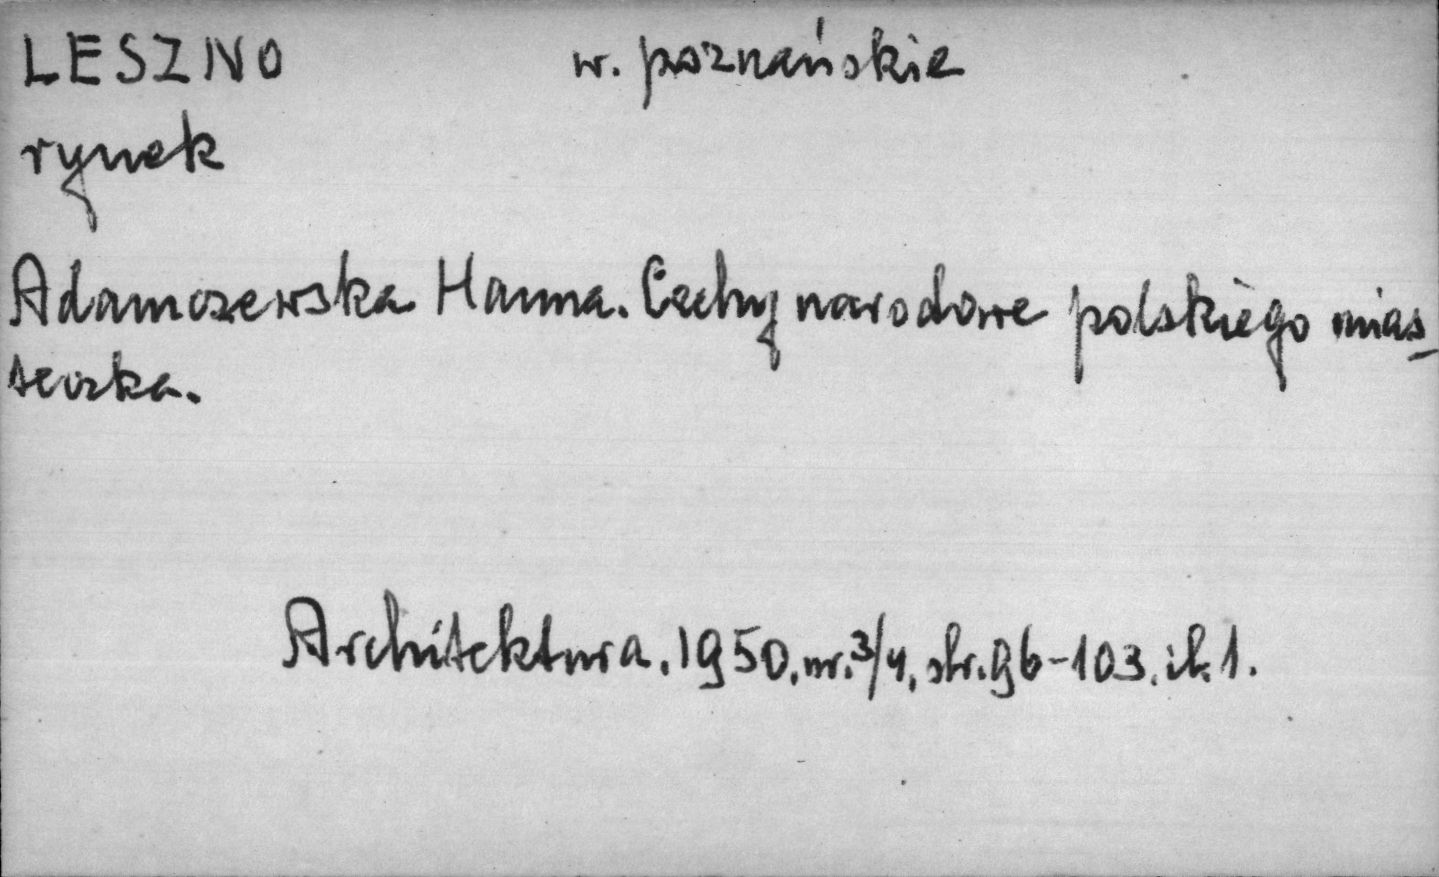 LESZNO w. poznańskie
rynek
Adamczewska Hanna. Cechy narodowe polskiego mias-
teczka.
Architektura. 1950, nr. 3/4, str. 96-103. il. 1.